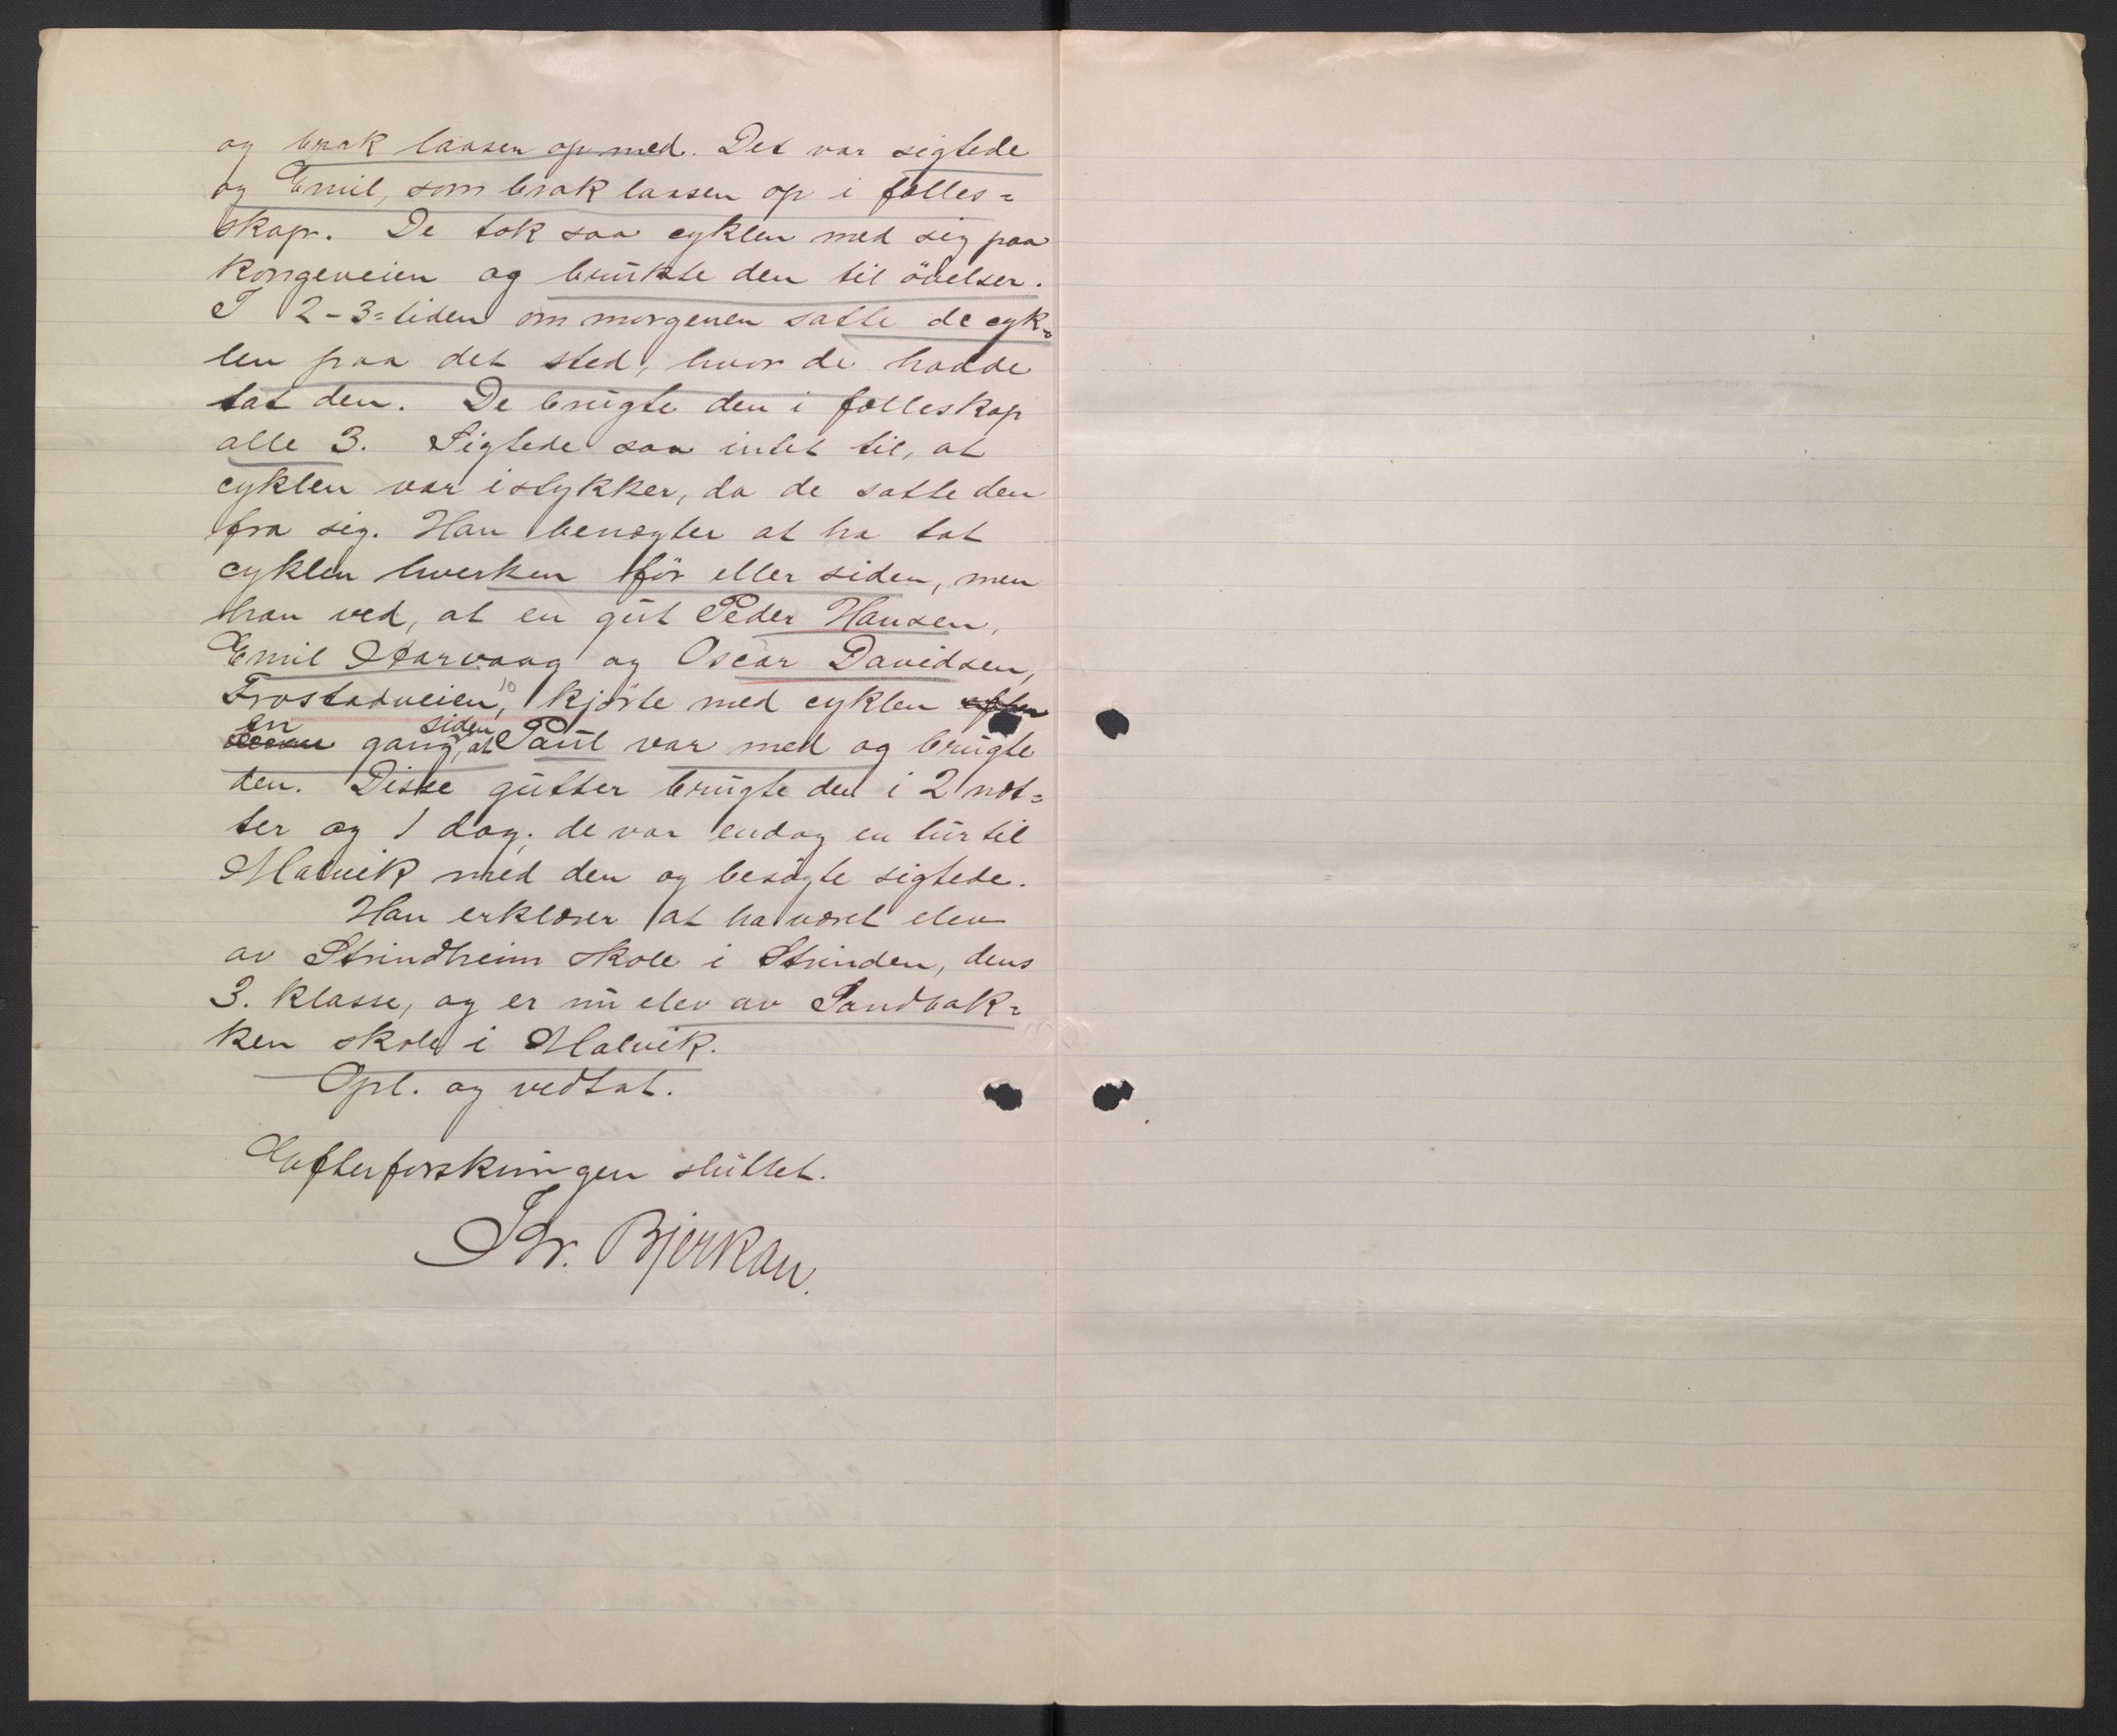 og brak laasen op med. Det var sigtede
og Emil, som brak laasen op i fælles=
skap. De tok saa cyklen med sig paa
Kongeveien og brukte den til øvelser.
I 2-3=tiden om morgenen satte de cyk=
len paa det sted, hvor de hadde
tat den. De brugte den i fælleskap
alle 3. Sigtede saa intet til, at
cyklen var istykker, da de satte den
fra sig. Han benægter at ha tat
cyklen hverken før eller siden, men
han ved, at en gut Peder Hansen,
Emil Aarvaag og Oscar Davidsen,
Frostadveien, 10 kjørte med cyklen efter
en gang, siden at Paul var med og brugte
den. Disse gutter brugte den i 2 næt=
ter og 1 dag; de var endog en tur til
Malvik med den og besøgte sigtede.
Han erklærer at ha været elev
av Strindheim skole i Strinden, dens
3. klasse, og er nu elev av Sandbak=
ken skole i Malvik.
Opl. og vedtat.
Efterforskningen sluttet.
Thr. Bjerkan.